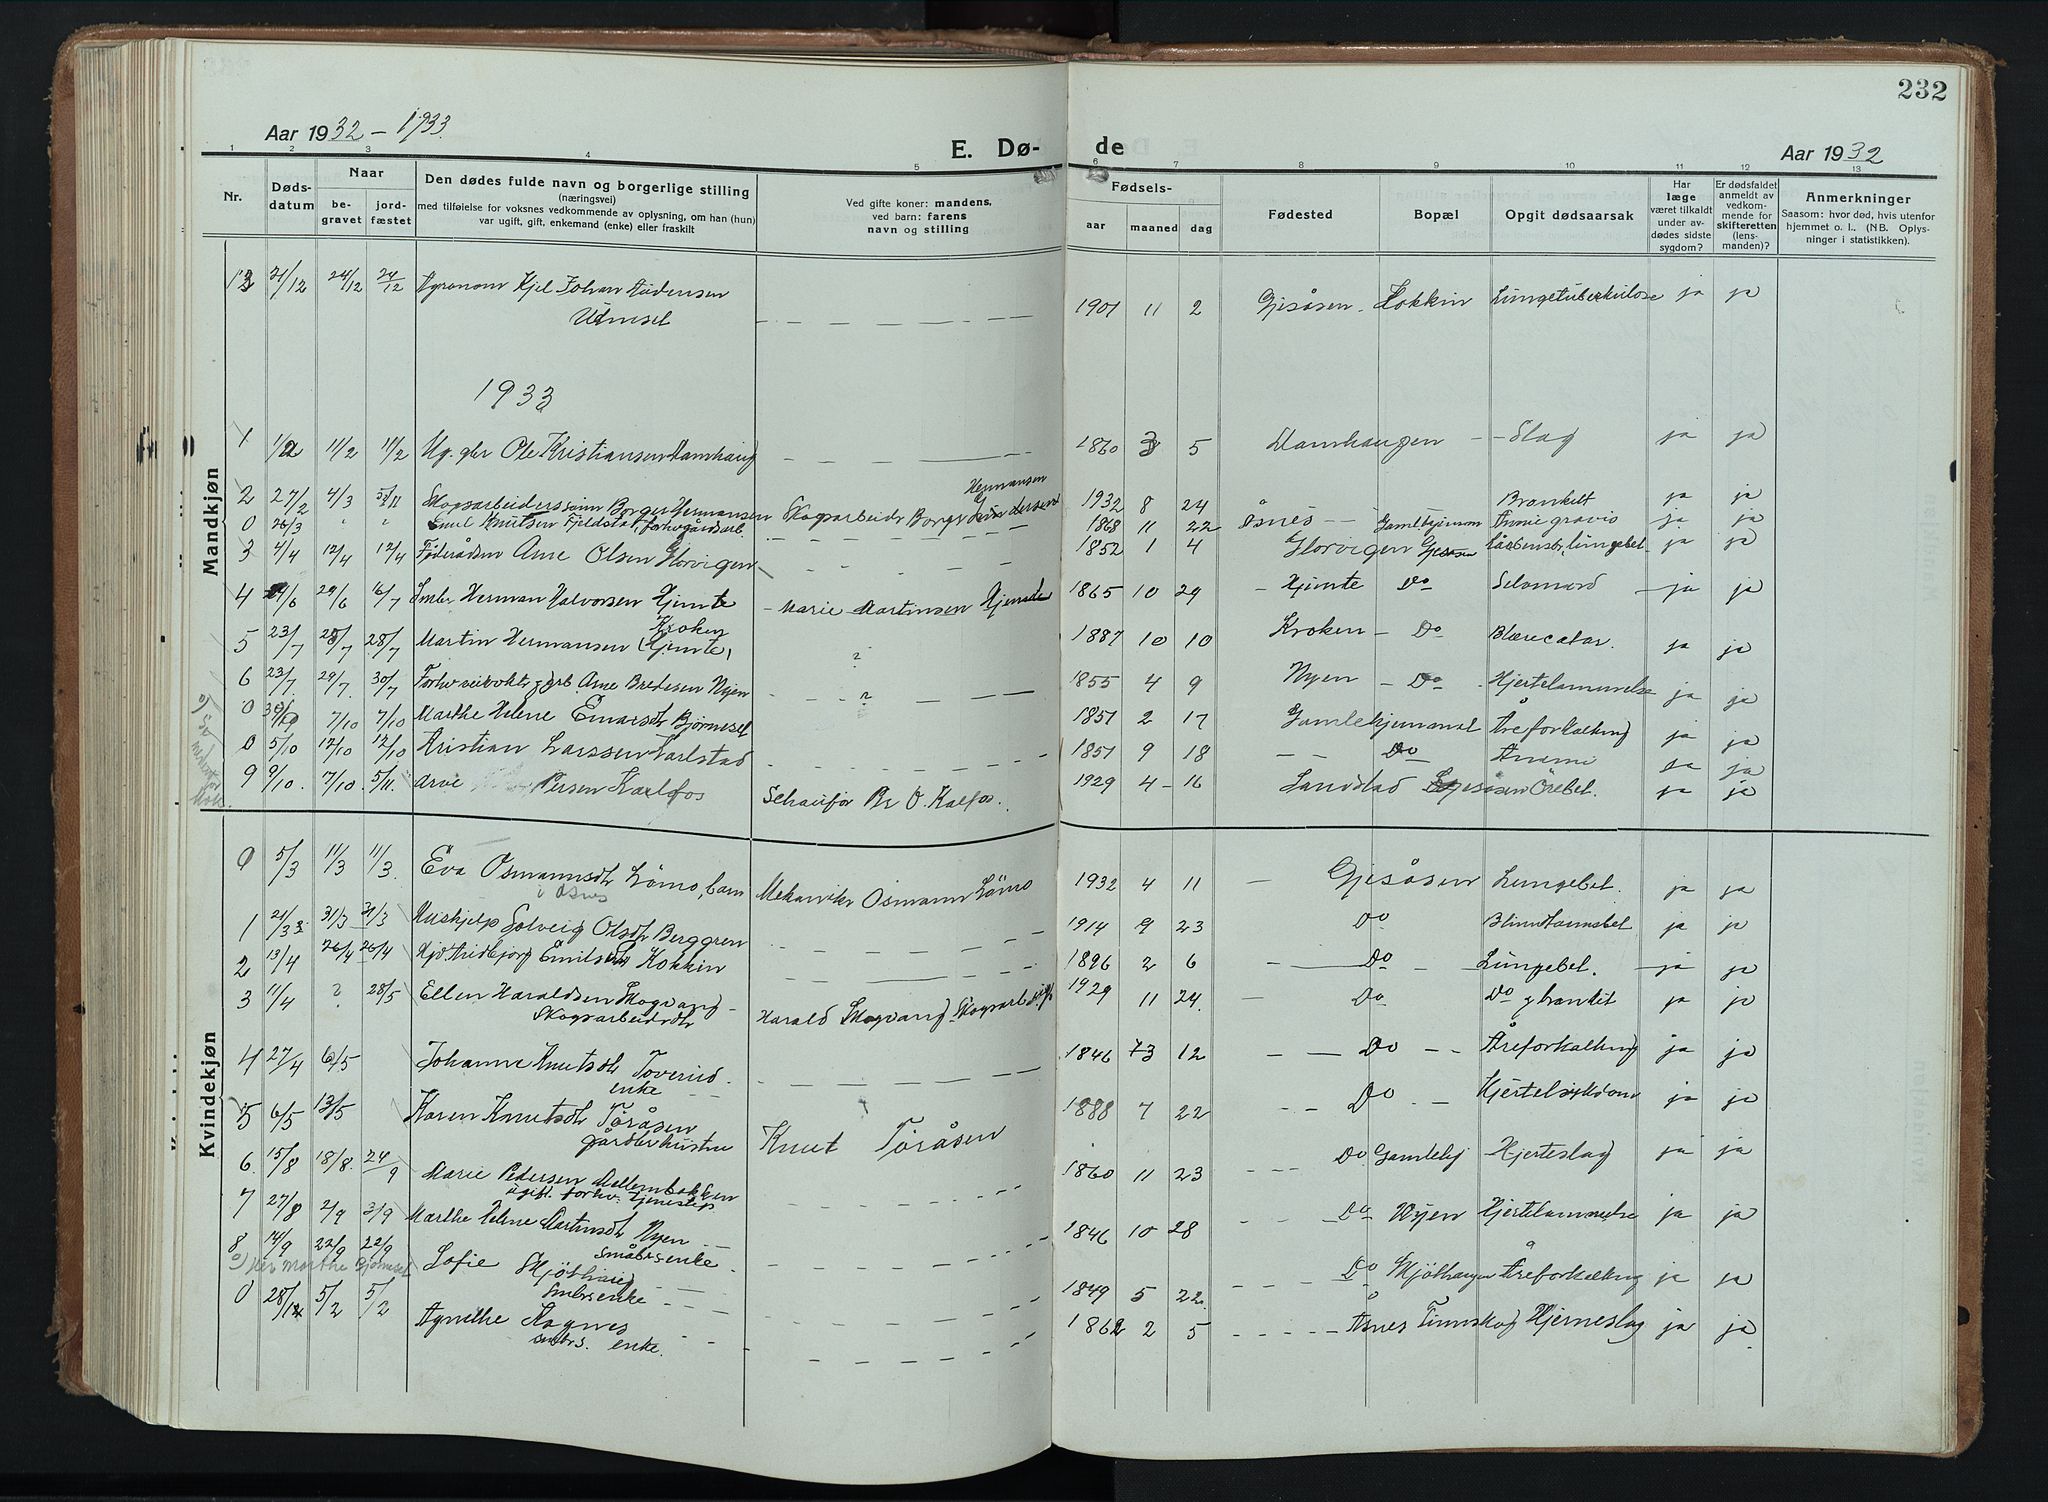 232
Aar 1932 – 1933.
E. Dø-
de
Aar 1932
1 2 3 4 5 6 7 8 9 10 11 12 13
Nr.
Døds-
datum
Naar
be-
gravet
jord-
fæstet
Den dødes fulde navn og borgerlige stilling
(næringsvei)
med tilføielse for voksnes vedkommende av oplysning, om han (hun)
var ugift, gift, enkemand (enke) eller fraskilt
Ved gifte koner: mandens,
ved barn: farens
navn og stilling
Fødsels-
aar
maaned
dag
Fødested
Bopæl
Opgit dødsaarsak
Har
læge
været tilkaldt
under av-
dødes sidste
sygdom?
Er dødsfaldet
anmeldt av
vedkom-
mende for
skifteretten
(lens-
manden)?
Anmerkninger
Saasom: hvor død, hvis utenfor
hjemmet o. l.. (NB. Oplys-
ninger i statistikken).
Mandkjøn
13 21/12 24/12 24/12 Agronom Kjel Johan 1901 11 2 Gjesåsen Hokkin Lungetuberkulose ja ja
1933
1 11/2 11/2 Ug. gbr Ole Kristiansen Damhaug 1860 3 5 Damhaugen – – Slag ja ja
2 27/2 4/3 Skogsarbeiderssønn Borger Hermansen Skogsarbeider Borger Hermansen 1932 8 24 Bronkit ja ja
0 26/3 " " Emil Knutsen Fjeldstad, forhv gårdsarb. 1868 11 22 Åsnes – – Gamlehjemm ja ja
3 4/4 12/4 12/4 Føderådsm Arne Olsen Glorvigen 1852 1 4 Glorvigen Gjesåsen Lungebet. ja ja
4 6 29/6 16/7 Smbr Herman Halvorsen Hjemte – Marie Martinsen 1865 10 29 – Hjemte Do Selvmord – ja ja
Kroken
5 23/7 28/7 28/7 Martin Hermansen (Hjemte) ? 1887 10 10 Kroken – Do Blærecatar. ja ja
6 23/7 29/7. 30/7 Forhv veivokter Arne Bredesen Nyen ? 1855 4 9 Nyen – Do Hjertelammelse ja ja
0 7/10 7/10 Marthe Helene Einarsdtr Bjørnesel 1851 2 17 Gamlehjemmet Åreforkalkning ja ja
0 5/10 12/10 12/10 Kristian Larssen Karlstad 1851 9 18 – – Do ja ja
9 9/10. 7/10 5/11. Arve Persen Karlfos Schaufør Pr O. Kalfos. 1929 4 – 16 Sandstad Gjesåsen ja ja
Kvindekjøn
0 5/3 11/3 11/3 Eva Osmannsdtr Lömo, barn Mekaniker Osmann Lömo 1932 4 11 – Gjesåsen Lungebet. ja ja
i Åsnes
1 21/3 31/3 31/3 Hushjelp Solveig Olsdtr Berggren 1914 9 23 Do Blindtarmsbet ja ja
2 13/4 26/4 26/4 Emilsdtr Hokkin 1896 2 6 – Do – Lungebet. – ja ja
3 11/4 ? 28/5 Ellen Haraldsen Skogvang – Harald Skogvang Skogsarbeider 1929 11 24. – Do Do g bronkit ja ja
Skogsarbeidsdtr
4 27/4 6/5 Johanne Knutsdtr Töverud. 1846 3 12 – – Do – – Åreforkalkning ja ja
enke
5 6/5 13/5 Karen Knutsdtr Töråsen Knut Töråsen 1888 7 22 – – Do – – Hjertesykdom ja ja
gårdbr hustru
6. 15/8 18/8. 24/9 Marie Pedersen Mellembakken 1860 11 23 – – – Do Gamlehj Hjerteslag ja ja
ugift. forhv. tjenestep
7 27/8 2/9 3/9 Marthe Helene Martinsdtr Nyen 1846 10 28 – – – Do Nyen Hjertelammelse ja ja
småbrs enke
8 14/9 22/9 22/9 Sofie Skjöthaug 1849 5 22. – – – Do Skjöthaugen Åreforkalkning ja ja
Smbrs enke
9) Her Marthe Bjørnesel
0 28/12 5/2 5/2 Agnethe Aagnes 1862 2 5 – – – – Åsnes Finnskog Hjerneslag ja ja.
smbrs. enke.